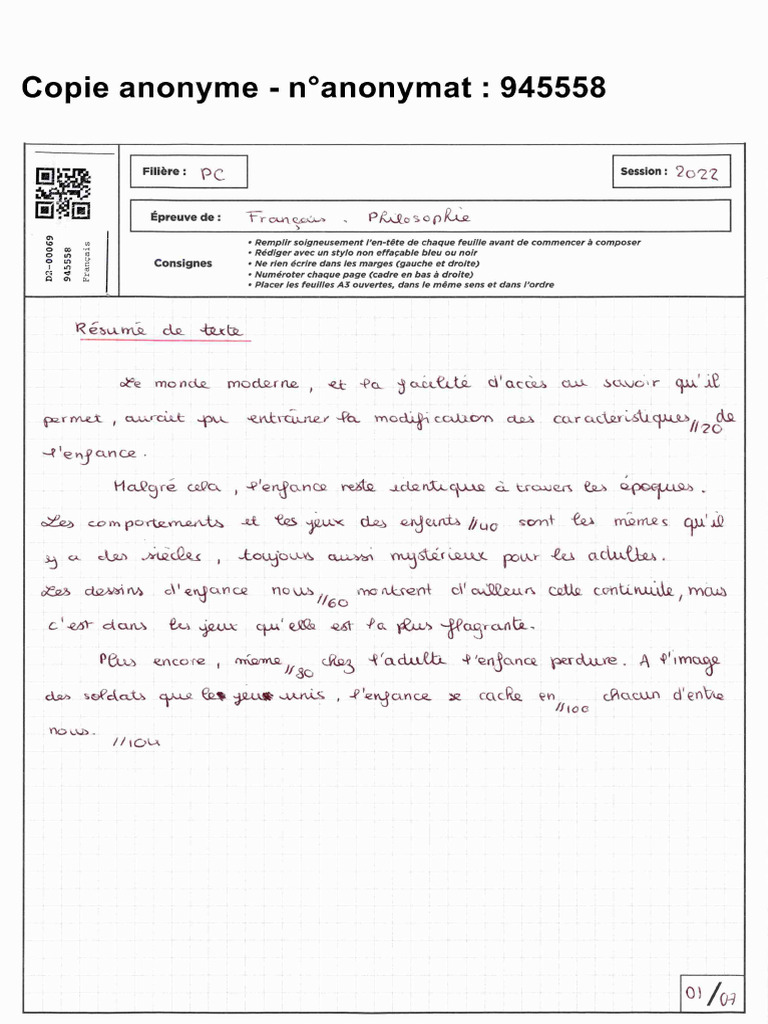 Copie anonyme - n°anonymat : 945558
Filière : PC
Session : 2022
Épreuve de : Français . Philosophie
Consignes
• Remplir soigneusement l'en-tête de chaque feuille avant de commencer à composer
• Rédiger avec un stylo non effaçable bleu ou noir
• Ne rien écrire dans les marges (gauche et droite)
• Numéroter chaque page (cadre en bas à droite)
• Placer les feuilles A3 ouvertes, dans le même sens et dans l'ordre
D2-00069
945558
Français
Résumé de texte
Le monde moderne, et la facilité d'accès au savoir qu'il
permet, aurait pu entraîner la modification des caracteristiques //20 de
l'enfance.
Malgré cela, l'enfance reste identique à travers les époques.
Les comportements et les jeux des enfants //40 sont les mêmes qu'il
y a des siècles, toujours aussi mystérieux pour les adultes.
Les dessins d'enfance nous //60 montrent d'ailleurs cette continuité, mais
c'est dans les jeux qu'elle est la plus flagrante.
Plus encore, même //80 chez l'adulte l'enfance perdure. A l'image
des soldats que les jeux unis, l'enfance se cache en //100 chacun d'entre
nous. //104
01/07